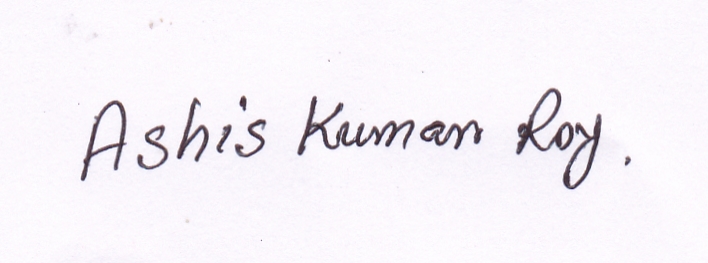 Ashis Kumar Roy.